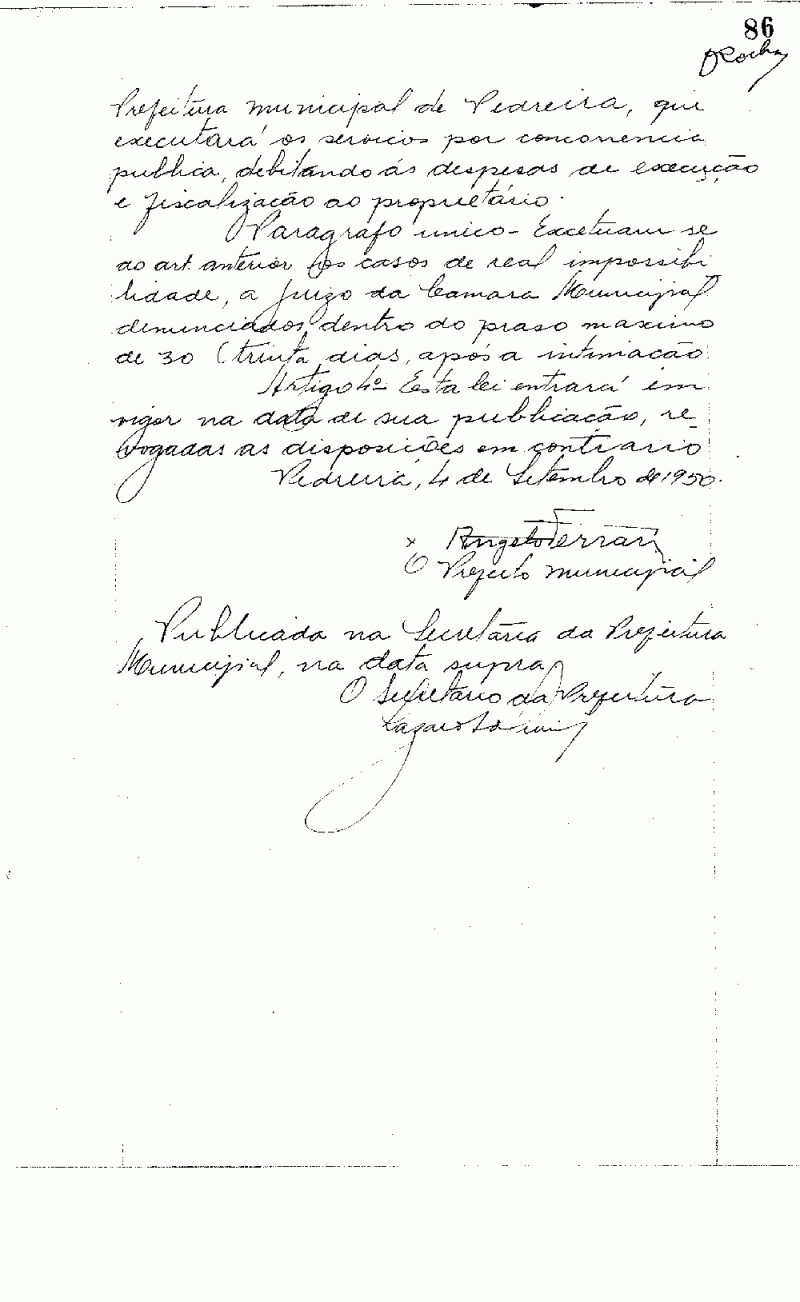 86
ORocha
Prefeitura municipal de Pedreira, que
executará os serviços por concorrencia
publica, debitando ás despesas de execução
e fiscalização ao proprietário.
Paragrafo unico - Excetuam se
do art. anterior os casos de real impossibi
lidade, a juizo da Camara Municipal
denunciados, dentro do praso maximo
de 30 (trinta dias, após a intimação
Artigo 4º Esta lei entrará em
vigor na data de sua publicação, re_
vogadas as disposições em contrario
Pedreira, 4 de Setembro de 1950.
x Angelo Ferrari
O Prefeito municipal
Publicada na Secretária da Prefeitura
Municipal, na data supra
O Secretario da Prefeitura